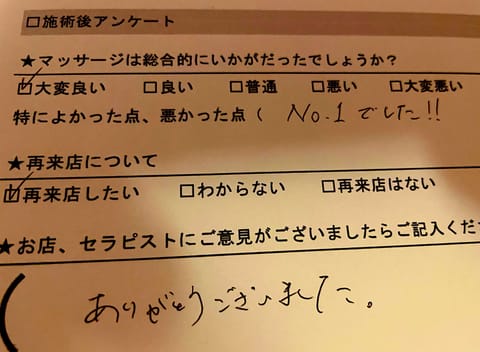 □施術後アンケート
★マッサージは総合的にいかがだったでしょうか?
☑大変良い □良い □普通 □悪い □大変悪い
特によかった点、悪かった点( No.1でした!!
★再来店について
☑再来店したい □わからない □再来店はない
★お店、セラピストにご意見がございましたらご記入くだ
( ありがとうございました。